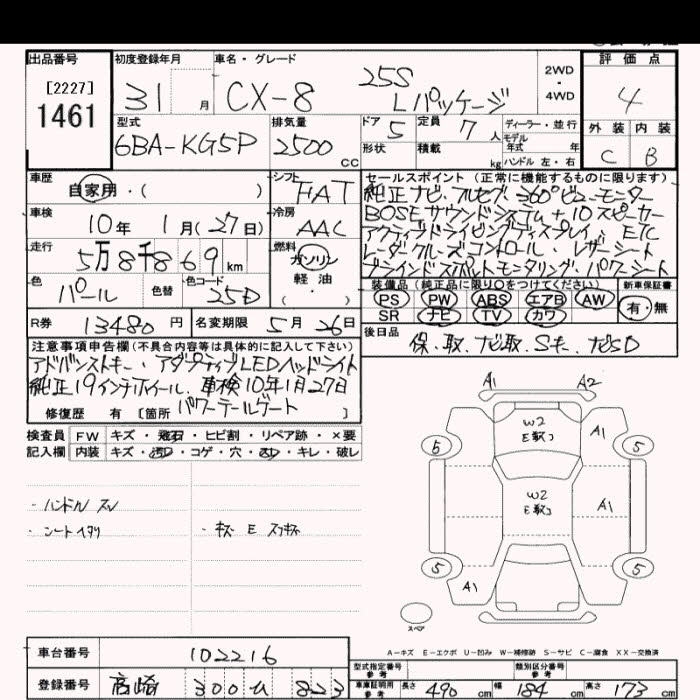 出品番号 初度登録年月 車名・グレード 評価点
[2227]
1461
31 月 CX-8 25S Lパッケージ 2WD ・ 4WD 4
型式 排気量 ドア 定員 ディーラー・並行 外装 内装
6BA-KG5P 2500 cc 5 7人 モデル年式 年 C B
形状 積載 kg ハンドル 左・右
車歴 シフト セールスポイント (正常に機能するものに限ります)
自家用・( ) FAT 純正ナビ・フルセグ・360°ビューモニター
車検 冷房 BOSEサウンドシステム+10スピーカー
10年 1月(27日) AAC アクティブドライビングディスプレイ、ETC
走行 燃料 レーダークルーズコントロール・レザーシート
5万8千869km ガソリン ブラインドスポットモニタリング、パワーシート
色 色替 色コード 軽油
パール 25D ( ・ )
装備品 (純正品に限り○をつけてください) 新車保証書
PS PW ABS エアB AW 有・無
SR ナビ TV カワ
R券 13480円 名変期限 5月26日
後日品 保、取、ナビ取、Sキー、ナビSD
注意事項申告欄(不具合内容等は具体的に記入して下さい)
アドバンストキー、アダプティブLEDヘッドライト
純正19インチホイール、車検10年1月27日
パワーテールゲート
修復歴 有 [箇所
検査員 FW キズ・飛石・ヒビ割・リペア跡・×要
記入欄 内装 キズ・汚・コゲ・穴・・キレ・破レ
・ハンドル スレ
・シートヘタリ ・キズ E
A1 A2
W2
E
A1
5 5
W2
E
A1
5 5
A1
スペア
A-キズ E-エクボ U-凹み W-補修跡 S-サビ C-腐食 XX-交換済
車台番号 102216
型式指定番号 参考 類別区分番号 参考
登録番号 高崎 300 823
車庫証明用 参考 長さ 490cm 幅 184cm 高さ 173cm